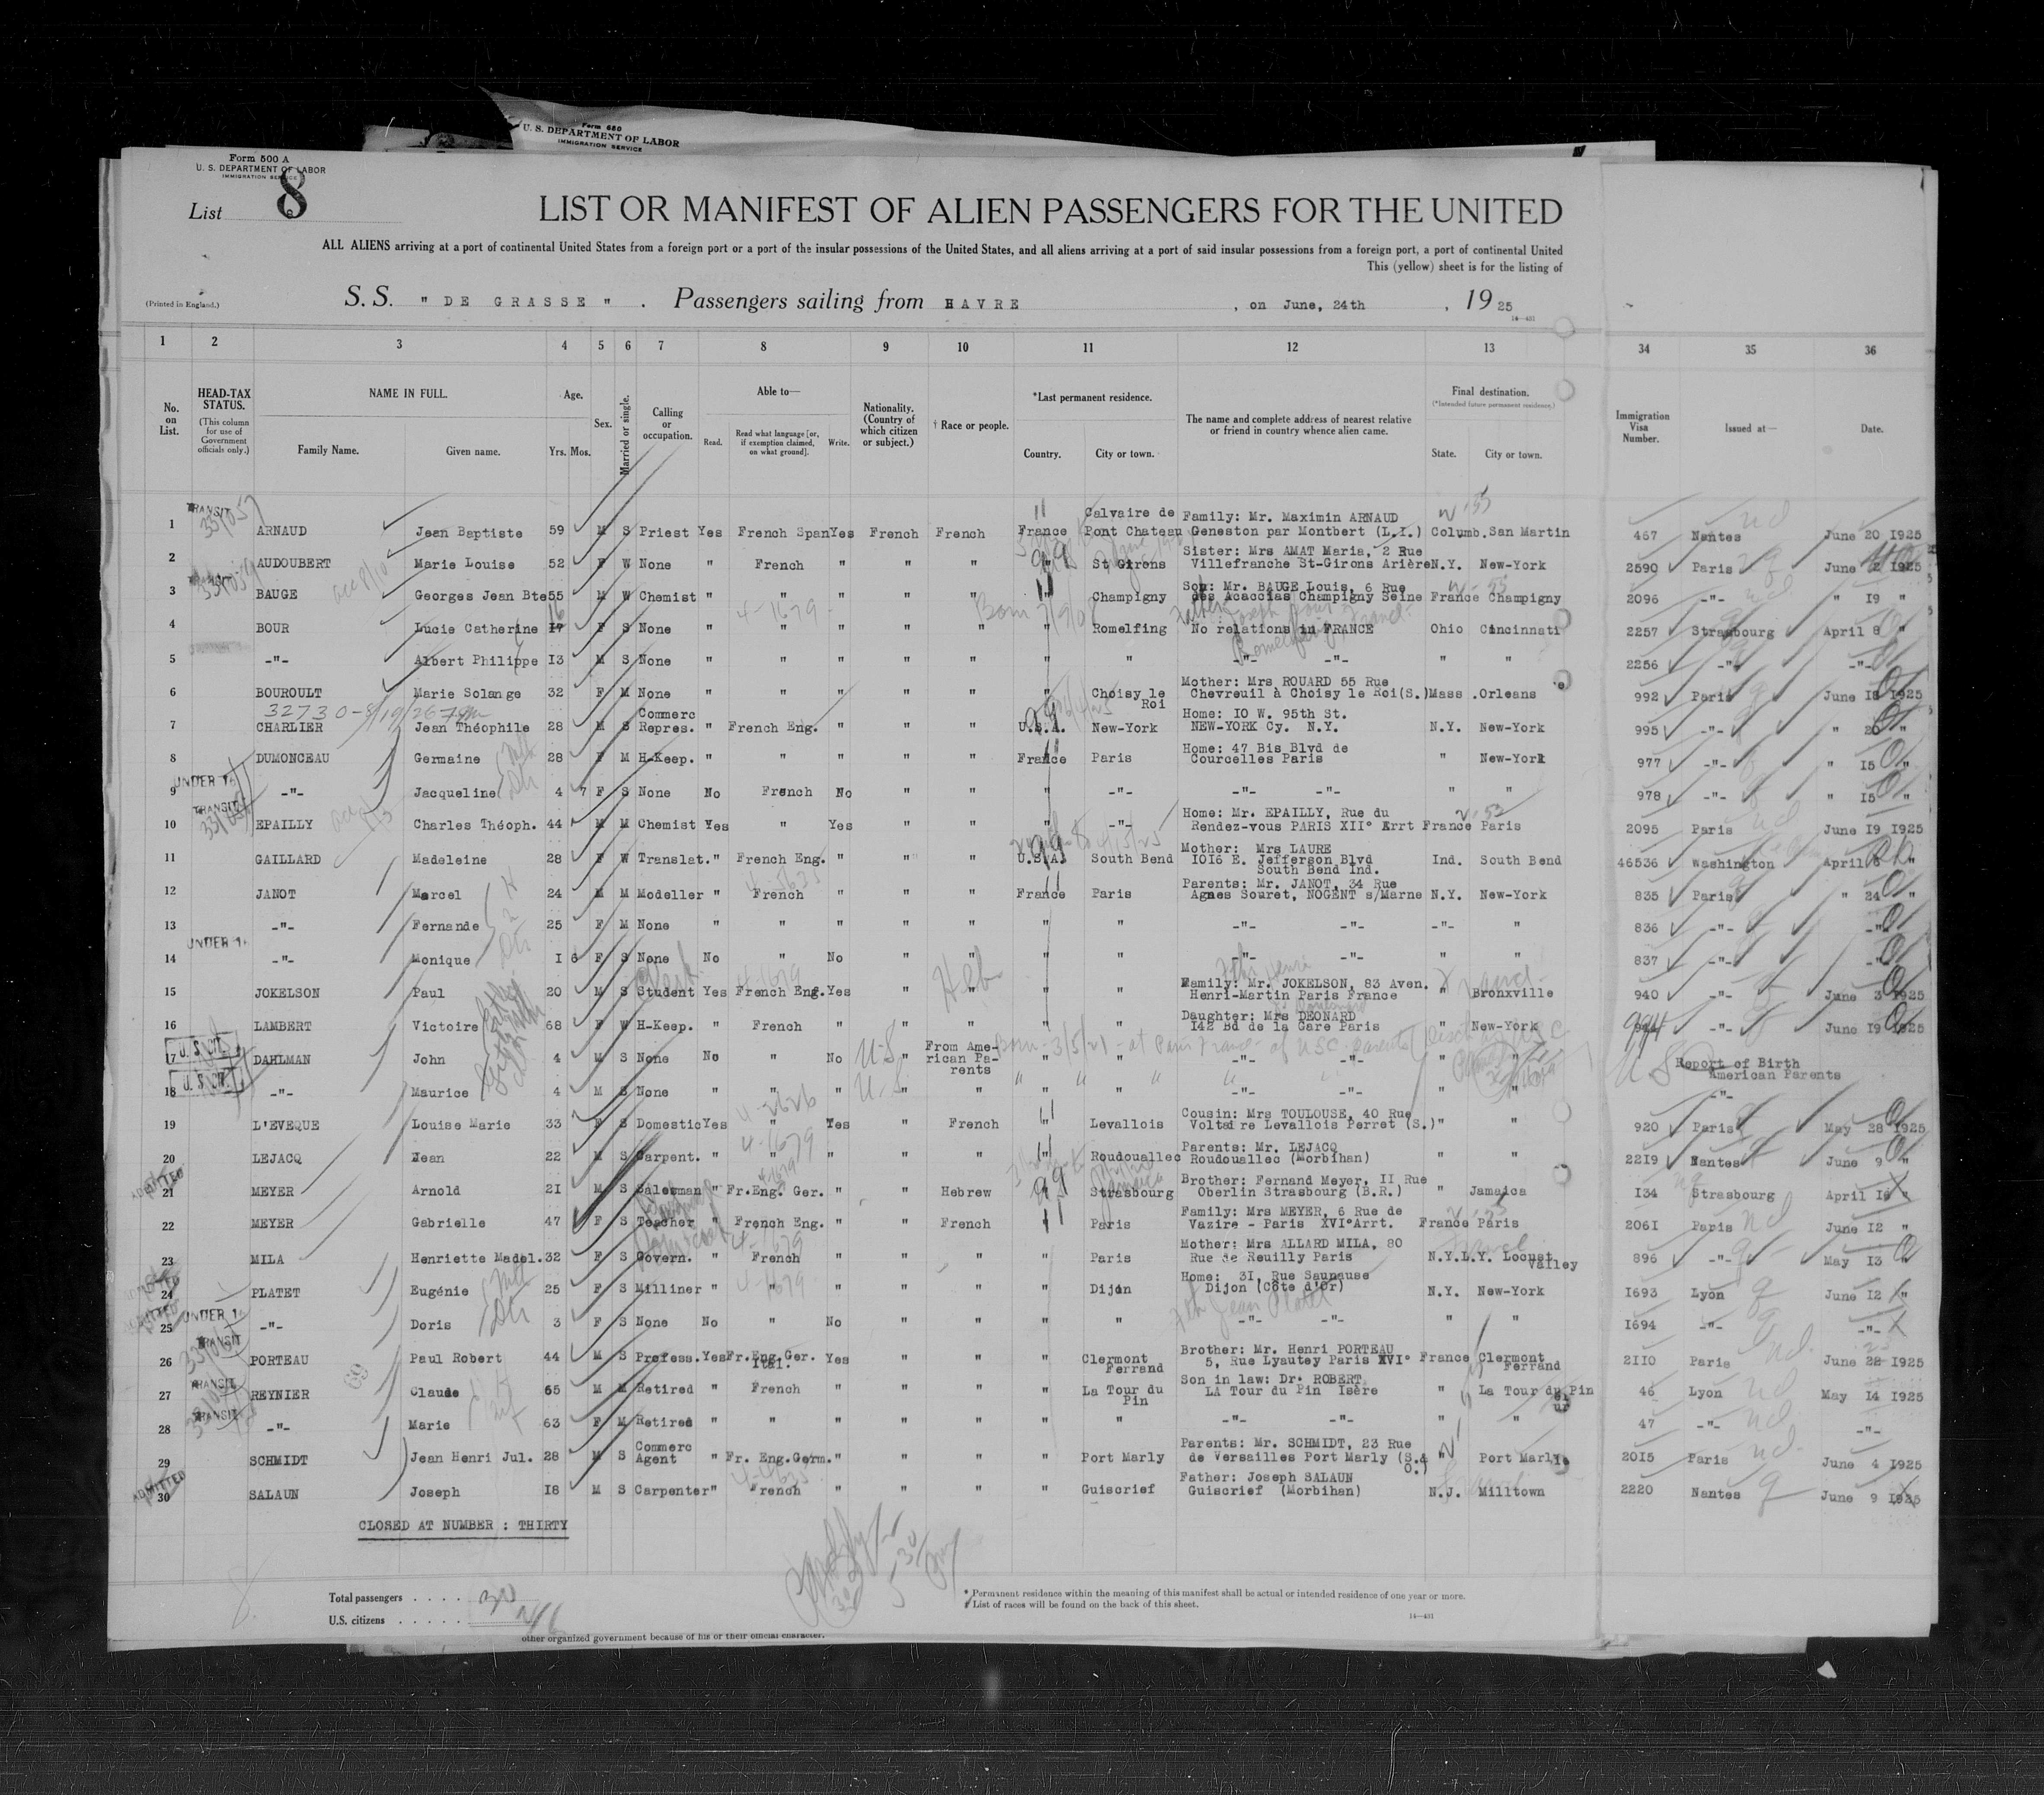 Form 680
U. S. DEPARTMENT OF LABOR
IMMIGRATION SERVICE
Form 500 A
U. S. DEPARTMENT OF LABOR
IMMIGRATION SERVICE
List 8
LIST OR MANIFEST OF ALIEN PASSENGERS FOR THE UNITED
ALL ALIENS arriving at a port of continental United States from a foreign port or a port of the insular possessions of the United States, and all aliens arriving at a port of said insular possessions from a foreign port, a port of continental United
This (yellow) sheet is for the listing of
(Printed in England.)
S. S. "DE GRASSE". Passengers sailing from HAVRE, on June, 24th, 1925
14—431
1 2 3 4 5 6 7 8 9 10 11 12 13 34 35 36
No. on List.
HEAD-TAX STATUS.
(This column for use of Government officials only.)
NAME IN FULL.
Family Name. Given name.
Age.
Yrs. Mos.
Sex.
Married or single.
Calling or occupation.
Able to—
Read. Read what language [or, if exemption claimed, on what ground]. Write.
Nationality. (Country of which citizen or subject.)
† Race or people.
*Last permanent residence.
Country. City or town.
The name and complete address of nearest relative or friend in country whence alien came.
Final destination.
(*Intended future permanent residence.)
State. City or town.
Immigration Visa Number.
Issued at—
Date.
TRANSIT
Calvaire de Family: Mr. Maximin ARNAUD
1 ARNAUD Jean Baptiste 59 M S Priest Yes French Span Yes French French France Pont Chateau Geneston par Montbert (L.I.) Columb. San Martin 467 Nantes June 20 1925
Sister: Mrs AMAT Maria, 2 Rue
2 AUDOUBERT Marie Louise 52 F W None " French " " " " St Girons Villefranche St-Girons Arière N.Y. New-York 2590 Paris June 2 1925
Son: Mr. BAUGE Louis, 6 Rue
3 BAUGE Georges Jean Bte 55 M W Chemist " " " " " " Champigny des Acaccias Champigny Seine France Champigny 2096 -"- " 19 "
4 BOUR Lucie Catherine 17 16 F S None " " " " " " Romelfing No relations in FRANCE Ohio Cincinnati 2257 Strasbourg April 8 "
5 -"- Albert Philippe 13 M S None " " " " " " " -"- -"- " " 2256 -"- -"-
Mother: Mrs ROUARD 55 Rue
6 BOUROULT Marie Solange 32 F M None " " " " " " Choisy le Roi Chevreuil à Choisy le Roi(S.) Mass. Orleans 992 Paris June 18 1925
32730-8/19/26
Commerc Home: 10 W. 95th St.
7 CHARLIER Jean Théophile 28 M S Repres. " French Eng. " " " U.S.A. New-York NEW-YORK Cy. N.Y. N.Y. New-York 995 -"- " 20 "
Home: 47 Bis Blvd de
8 DUMONCEAU Germaine 28 F M H-Keep. " " " " " France Paris Courcelles Paris " New-York 977 -"- " 15 "
UNDER 16
9 -"- Jacqueline 4 7 F S None No French No " " " -"- -"- -"- " " 978 -"- " 15 "
TRANSIT
Home: Mr. EPAILLY, Rue du
10 EPAILLY Charles Théoph. 44 M M Chemist Yes " Yes " " " -"- Rendez-vous PARIS XII° Arrt France Paris 2095 Paris June 19 1925
Mother: Mrs LAURE
11 GAILLARD Madeleine 28 F W Translat. " French Eng. " " " U.S.A. South Bend 1016 E. Jefferson Blvd Ind. South Bend 46536 Washington April 8 "
South Bend Ind.
Parents: Mr. JANOT, 34 Rue
12 JANOT Marcel 24 M M Modeller " French " " " France Paris Agnes Souret, NOGENT s/Marne N.Y. New-York 835 Paris " 24 "
13 -"- Fernande 25 F M None " " " " " " " -"- -"- -"- " 836 -"- -"-
UNDER 16
14 -"- Monique 1 6 F S None No " No " " " " -"- -"- " " 837 -"- -"-
Family: Mr. JOKELSON, 83 Aven.
15 JOKELSON Paul 20 M S Student Yes French Eng. Yes " Heb " " Henri-Martin Paris France " Bronxville 940 -"- June 3 1925
Daughter: Mrs DEONARD
16 LAMBERT Victoire 68 F W H-Keep. " French " " " " " 142 Bd de la Gare Paris " New-York 994 -"- June 19 1925
U. S. CIT.
17 DAHLMAN John 4 M S None No " No U-S " From American Parents " " -"- -"- " " U S Report of Birth American Parents
Born-3/5/21-at Paris France- of USC-parents
U. S. CIT.
18 -"- Maurice 4 M S None " " " U-S " " " " -"- -"- " " -"-
Cousin: Mrs TOULOUSE, 40 Rue
19 L'EVEQUE Louise Marie 33 F S Domestic Yes " Yes " French " Levallois Voltaire Levallois Perret (S.) " " 920 Paris May 28 1925
Parents: Mr. LEJACQ
20 LEJACQ Jean 22 M S Carpent. " " " " " " Roudouallec Roudouallec (Morbihan) " " 2219 Nantes June 9 "
ADMITTED
Brother: Fernand Meyer, 11 Rue
21 MEYER Arnold 21 M S Salesman " Fr.Eng. Ger. " " Hebrew " Strasbourg Oberlin Strasbourg (B.R.) " Jamaica 134 Strasbourg April 16 "
Family: Mrs MEYER, 6 Rue de
22 MEYER Gabrielle 47 F S Teacher " French Eng. " " French " Paris Vazire - Paris XVI°Arrt. France Paris 2061 Paris June 12 "
Mother: Mrs ALLARD MILA, 80
23 MILA Henriette Madel. 32 F S Govern. " French " " " " Paris Rue de Reuilly Paris N.Y. L.Y. Locust Valley 896 -"- May 13 "
Home: 31, Rue Saunause
24 PLATET Eugénie 25 F S Milliner " " " " " " Dijon Dijon (Côte d'Or) N.Y. New-York 1693 Lyon June 12 "
UNDER 16
25 -"- Doris 3 F S None No " No " " " " -"- -"- " " 1694 -"- -"-
TRANSIT
Brother: Mr. Henri PORTEAU
26 PORTEAU Paul Robert 44 M S Profess. Yes Fr.Eng.Ger. Ital. Yes " " " Clermont Ferrand 5, Rue Lyautey Paris XVI° France Clermont Ferrand 2110 Paris June 22 1925
TRANSIT
Son in law: Dr. ROBERT
27 REYNIER Claude 65 M M Retired " French " " " " La Tour du Pin LA Tour du Pin Isère " La Tour du Pin 46 Lyon May 14 1925
TRANSIT
28 -"- Marie 63 F M Retired " " " " " " " -"- -"- " " 47 -"- -"-
Commerc Parents: Mr. SCHMIDT, 23 Rue
29 SCHMIDT Jean Henri Jul. 28 M S Agent " Fr. Eng.Germ. " " " " Port Marly de Versailles Port Marly (S.& O.) " Port Marly 2015 Paris June 4 1925
ADMITTED
Father: Joseph SALAUN
30 SALAUN Joseph 18 M S Carpenter " French " " " " Guiscrief Guiscrief (Morbihan) N.J. Milltown 2220 Nantes June 9 1925
CLOSED AT NUMBER : THIRTY
Total passengers . . . . 30
U.S. citizens . . . . .
* Permanent residence within the meaning of this manifest shall be actual or intended residence of one year or more.
† List of races will be found on the back of this sheet.
14—431
other organized government because of his or their official character.